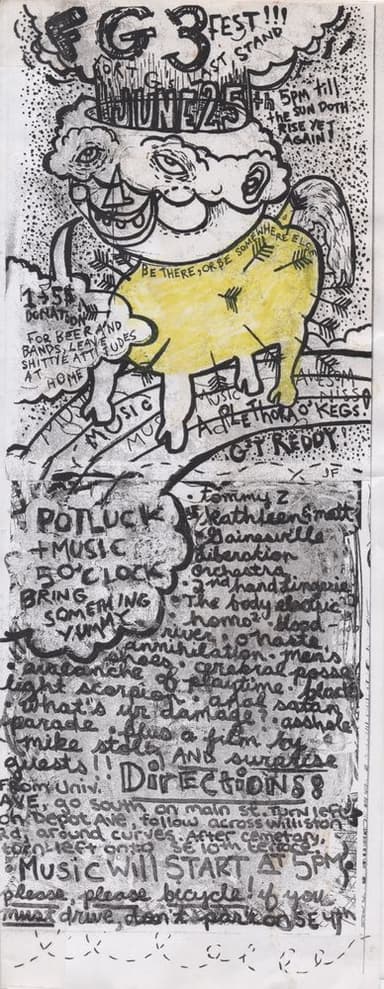 FG 3 FEST!!!
LAST STAND
JUNE 25th
5PM till
the SUN DOTH
RISE YET
AGAIN!
BE THERE, OR BE SOMEWHERE ELSE
1→5$
DONATION
FOR BEER AND
BANDS, LEAVE
SHITTIE ATTITUDES
AT HOME
MUSIC
MUSIC
A PLETHORA O' KEGS!
GET REDDY!
JF
POTLUCK
+ MUSIC
5 O'CLOCK
BRING
SOMETHING
YUMMY
• tommy z
• kathleen & matt
• Gainesville
liberation
orchestra
• 2nd hand lingerie
• The body electric
homo • blood-
river • o'haste
annihilation • men's
shoes • cerebral posse
• avalanche of playtime • black
light scorpion • anal satan
• what's ur damage? • asshole
parade • plus a film by
mike stole AND surprise
guests!!
DIRECTIONS:
From Univ.
AVE, go south on main st. turn left
on Depot Ave, follow across williston
rd, around curves. After cemetary,
turn left onto SE 10th terrace
MUSIC WILL START AT 5PM
please, please bicycle! if you
must drive, don't park on SE 4th